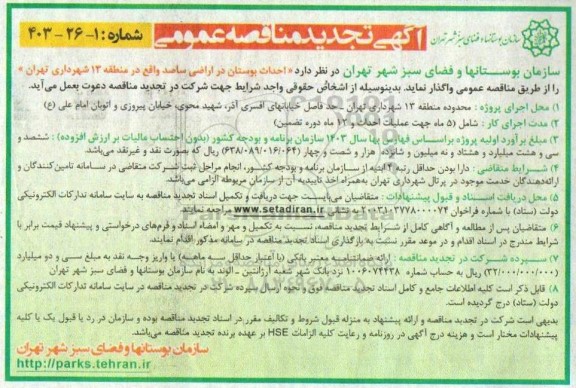 سازمان بوستانها و فضای سبز شهر تهران
آگهی تجدید مناقصه عمومی
شماره: ۱-۲۶-۴۰۳
سازمان بوستانها و فضای سبز شهر تهران در نظر دارد «احداث بوستان در اراضی ساصد واقع در منطقه ۱۳ شهرداری تهران»
را از طریق مناقصه عمومی واگذار نماید. بدینوسیله از اشخاص حقوقی واجد شرایط جهت شرکت در تجدید مناقصه دعوت بعمل می‌آید.
۱) محل اجرای پروژه: محدوده منطقه ۱۳ شهرداری تهران _ حد فاصل خیابانهای افسری آذر، شهید محوی، خیابان پیروزی و اتوبان امام علی (ع)
۲) مدت اجرای کار: شامل (۵ ماه جهت عملیات احداث و ۱۲ ماه دوره تضمین)
۳) مبلغ برآورد اولیه پروژه براساس فهارس بها سال ۱۴۰۳ سازمان برنامه و بودجه کشور (بدون احتساب مالیات بر ارزش افزوده): ششصد و
سی و هشت میلیارد و هشتاد و نه میلیون و شانزده هزار و شصت و چهار (۶۳۸/۰۸۹/۰۱۶/۰۶۴) ریال که بصورت نقد و غیرنقد می‌باشد.
۴) شرایط متقاضی: دارا بودن حداقل رتبه ۴ ابنیه از سازمان برنامه و بودجه کشور، انجام مراحل ثبت شرکت متقاضی در سامانه تامین‌کنندگان و
ارائه‌دهندگان خدمت موجود در پرتال شهرداری تهران به‌همراه اخذ تاییدیه آن از سازمان مربوطه الزامی می‌باشد.
۵) محل دریافت اسناد و قبول پیشنهادات: متقاضیان می‌بایست جهت دریافت و تکمیل اسناد تجدید مناقصه به سایت سامانه تدارکات الکترونیکی
دولت (ستاد) با شماره فراخوان ۲۰۰۳۰۹۳۷۷۸۰۰۰۰۷۴ به آدرس www.setadiran.ir مراجعه نمایند.
۶) متقاضیان پس از مطالعه و آگاهی کامل از شرایط تجدید مناقصه، نسبت به تکمیل و مهر و امضاء اسناد و فرم‌های درخواستی و پیشنهاد قیمت برابر با
شرایط مندرج در اسناد اقدام و در موعد مقرر نسبت به بارگذاری اسناد تجدید مناقصه در سامانه مذکور اقدام نمایند.
۷) سپرده شرکت در تجدید مناقصه: ارائه ضمانتنامه معتبر بانکی (با اعتبار حداقل سه ماهه) یا واریز وجه نقد به مبلغ سی و دو میلیارد
(۳۲/۰۰۰/۰۰۰/۰۰۰) ریال به حساب شماره ۱۰۰۶۰۷۴۴۳۸ نزد بانک شهر شعبه آرژانتین _ الوند به نام سازمان بوستانها و فضای سبز شهر تهران
۸) قابل ذکر است کلیه اطلاعات جامع و کامل اسناد تجدید مناقصه فوق و نحوه ارسال سپرده شرکت در تجدید مناقصه در سایت سامانه تدارکات الکترونیکی
دولت (ستاد) درج گردیده است.
بدیهی است شرکت در تجدید مناقصه و ارائه پیشنهاد به منزله قبول شروط و تکالیف مقرر در اسناد تجدید مناقصه بوده و سازمان در رد یا قبول یک یا کلیه
پیشنهادات مختار است و هزینه درج آگهی در روزنامه و رعایت کلیه الزامات HSE بر عهده برنده تجدید مناقصه می‌باشد.
سازمان بوستانها و فضای سبز شهر تهران
http://parks.tehran.ir